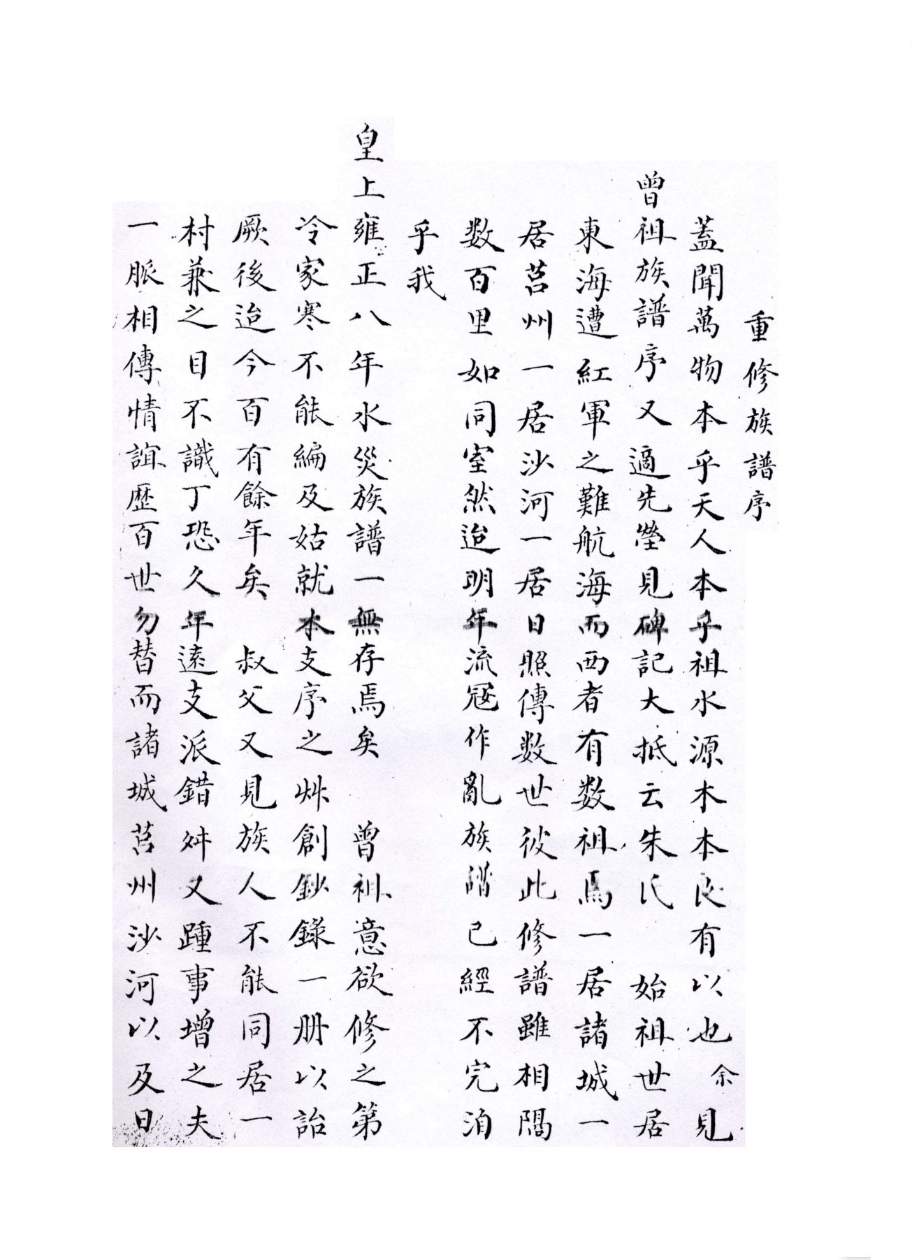 重修族譜序
蓋聞萬物本乎天人本乎祖水源木本良有以也余見
曾祖族譜序又適先塋見碑記大抵云朱氏　始祖世居
東海遭紅軍之難航海而西者有数祖焉一居諸城一
居莒州一居沙河一居日照傳数世彼此修譜雖相隔
数百里如同室然迨明年流冦作亂族譜已經不完洎
乎我
皇上雍正八年水災族譜一無存焉矣　曾祖意欲修之第
冷家寒不能編及姑就本支序之艸創鈔錄一册以詒
厥後迨今百有餘年矣　叔父又見族人不能同居一
村兼之目不識丁恐久年遠支派錯舛又踵事增之夫
一脈相傳情誼歷百世勿替而諸城莒州沙河以及日